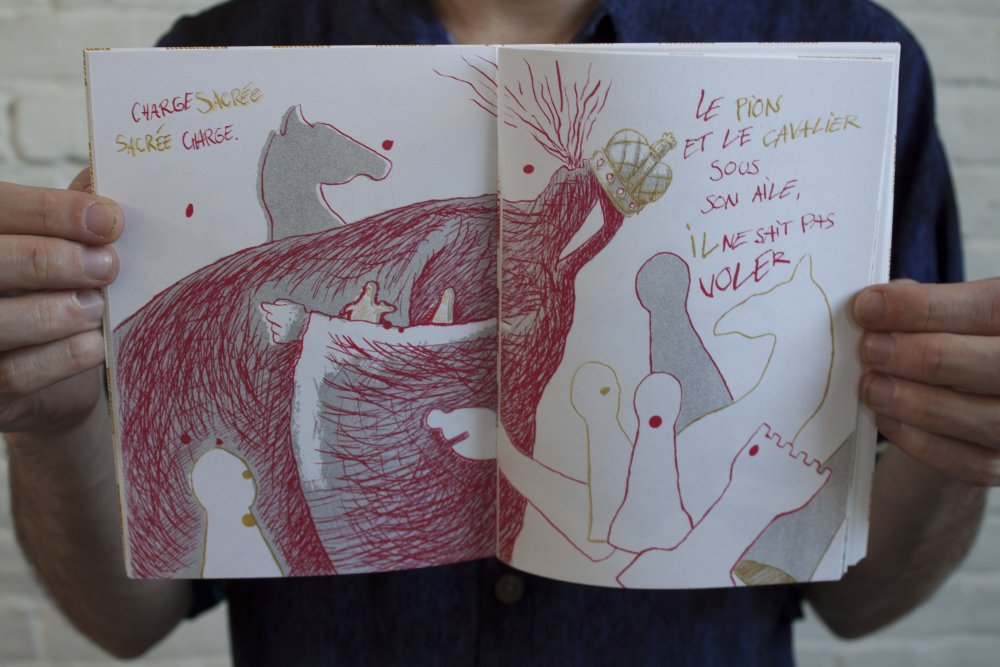 CHARGE SACRÉE
SACRÉE CHARGE.
LE PION
ET LE CAVALIER
SOUS
SON AILE,
IL NE SAIT PAS
VOLER